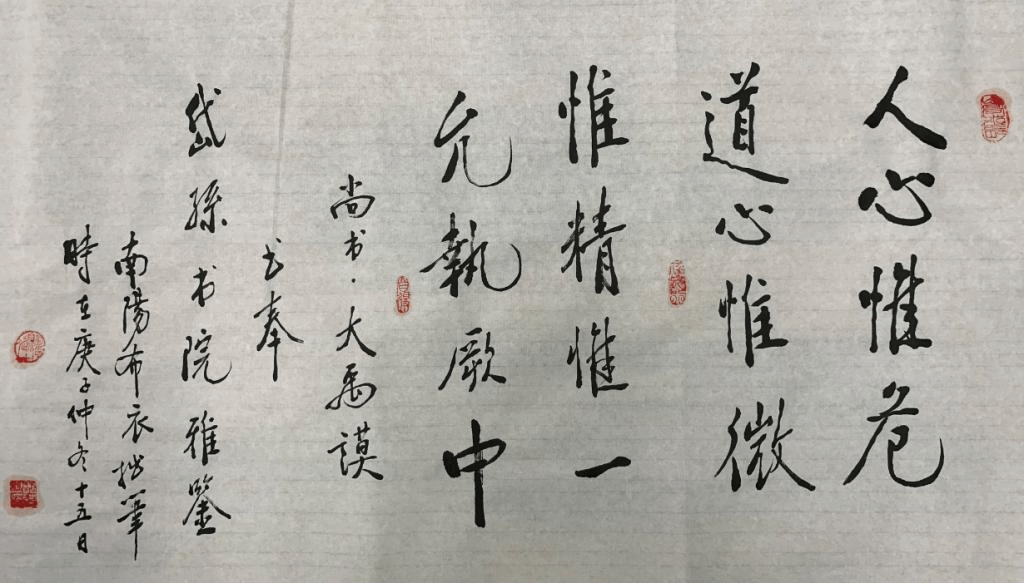 人心惟危
道心惟微
惟精惟一
允執厥中
尚书·大禹謨
书奉
岱孫书院雅鑒
南陽布衣拙筆
時在庚子仲冬十五日